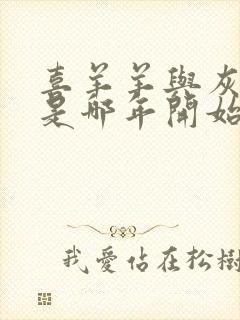 喜羊羊與灰
是哪年開始
我愛佔在松樹